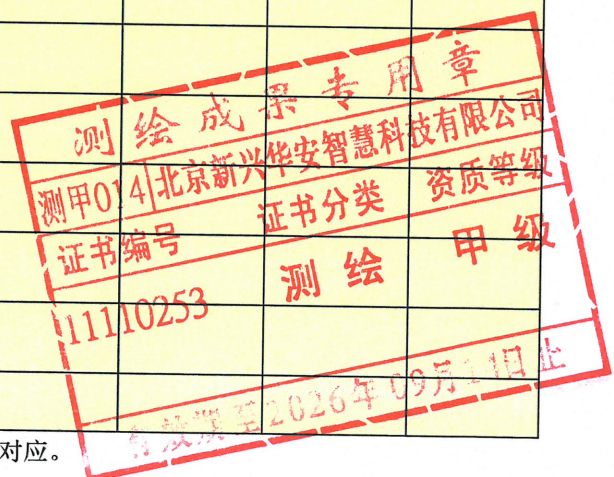 测绘成果专用章
测甲014 北京新兴华安智慧科技有限公司
证书编号 证书分类 资质等级
11110253 测绘 甲级
有效期至2026年09月14日止
对应。